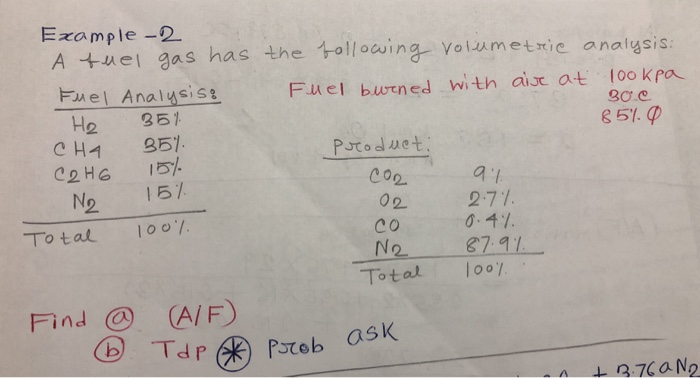 Example -2
A fuel gas has the following volumetric analysis:
Fuel Analysis:
H2 35%
CH4 35%
C2H6 15%
N2 15%
Total 100%
Fuel burned with air at 100 kpa
30.c
85% Φ
Product:
CO2 9%
O2 2.7%
CO 0.4%
N2 87.9%
Total 100%
Find (a) (A/F)
(b) Tdp * Prob ask
+ 3.76 a N2